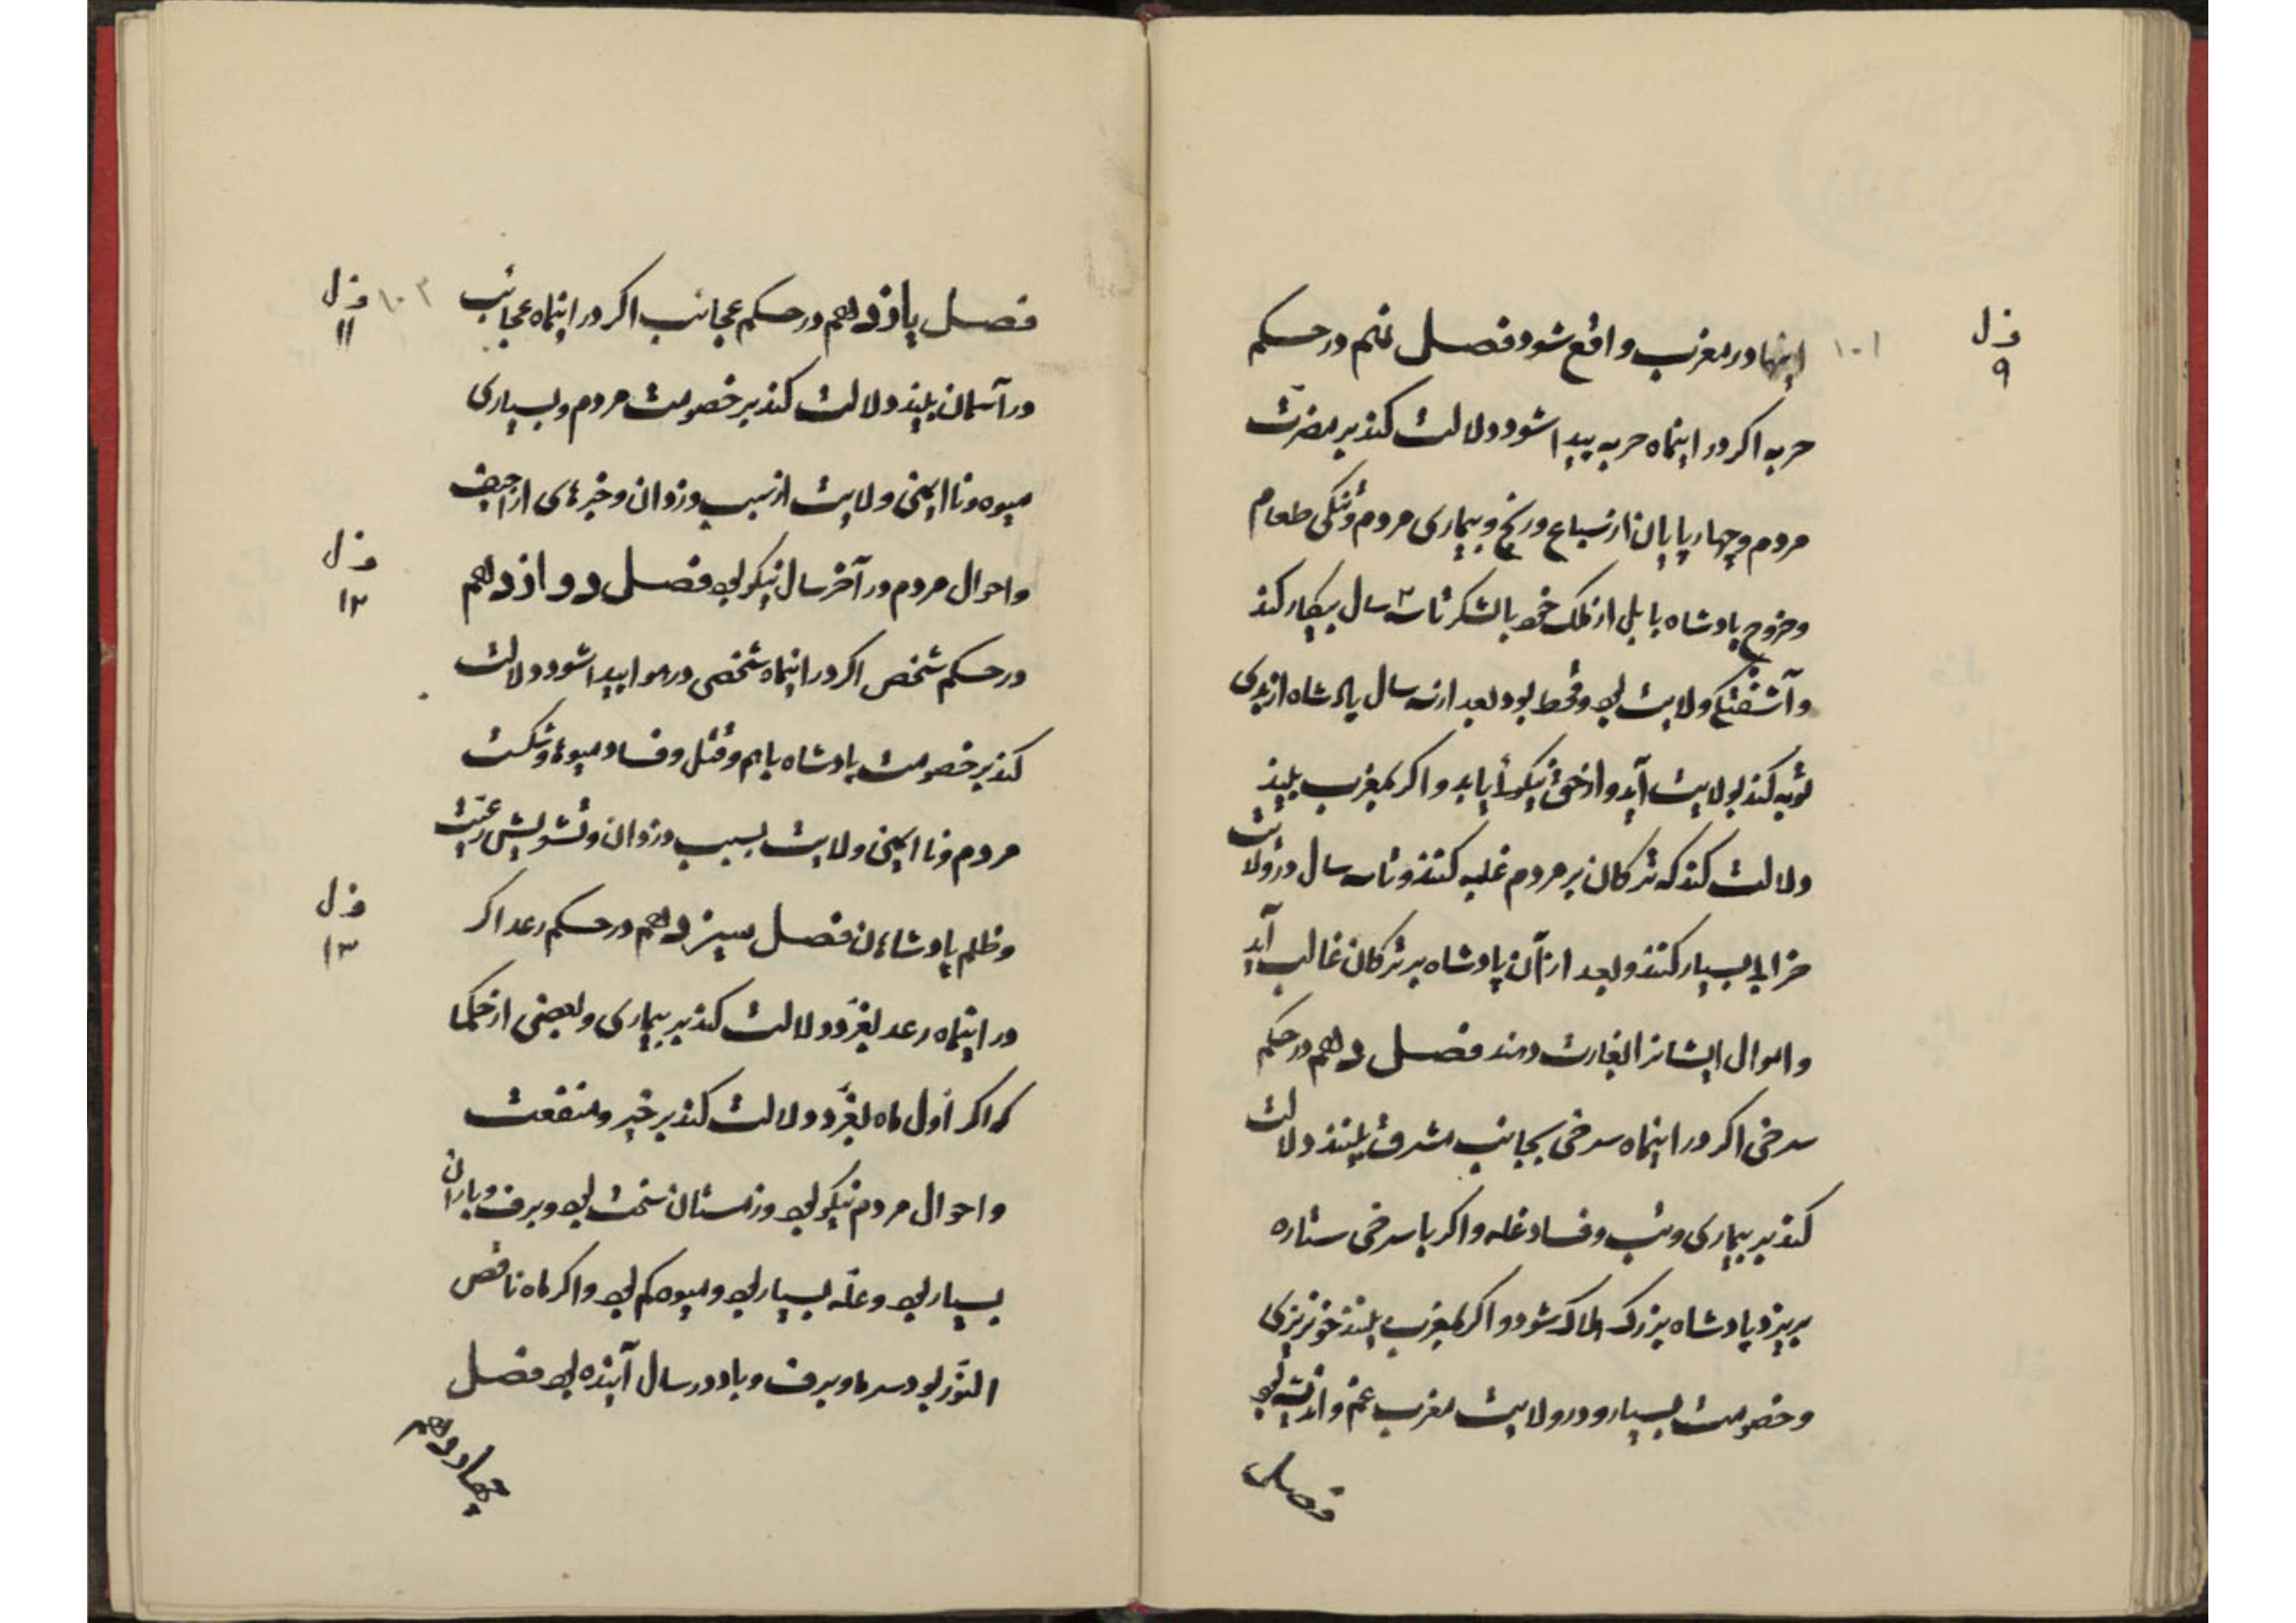 اینها در مغرب واقع شود فصل نهم در حکم
حربه اکر در اینماه حربه پیدا شود دلالت کند بر مضرّت
مردم و چهارپایان از سباع و رنج و بیماری مردم و تنکی طعام
و خروج پادشاه بابل از ملک خود با لشکر تا سه سال پیکار کند
و آشفتکی ولایت بود و قحط بود و بعد از سه سال پادشاه از بدی
توبه کند بولایت آید و از نیکوئی یابد و اکر بمغرب بیند
دلالت کند که ترکان بر مردم غلبه کنند و تا سه سال در ولایت
خرابی بسیار کنند و بعد از آن پادشاه بر ترکان غالب آید
و اموال ایشانرا بغارت دهند فصل دهم در حکم
سرخی اکر در اینماه سرخی بجانب مشرق بینند دلالت
کند بر بیماری و تب و فساد غله و اکر با سرخی ستاره
بریزد پادشاه بزرک هلاک شود و اکر بمغرب بینند خونریزی
و خصومت بسیار و در ولایت مغرب غم و اذیت بود
فصل
فصل ۹
۱۰۱
فصل یازدهم در حکم عجائب اکر در اینماه عجائب
در آسمان بیند دلالت کند بر خصومت مردم و بسیاری
میوه و نا ایمنی ولایت از سبب دزدان و خبرهای اراجیف
و احوال مردم در آخر سال نیکو بود فصل دوازدهم
در حکم شخص اکر در اینماه شخصی در هوا پیدا شود دلالت
کند بر خصومت پادشاه باهم و قتل و فساد میوه و شکست
مردم و نا ایمنی ولایت بسبب دزدان و تشویش رعیّت
و ظلم پادشاهان فصل سیزدهم در حکم رعد اکر
در اینماه رعد بغرّد دلالت کند بر بیماری و بعضی از حکما
که اکر اول ماه بغرّد دلالت کند بر خیر و منفعت
و احوال مردم نیکو بود و زمستان سخت بود و برف و باران
بسیار بود و غلّه بسیار بود و میوه کم بود و اکر ماه ناقص
النّور بود سرما و برف و باد در سال آینده بود فصل
چهاردهم
فصل ۱۱
۱۰۲
فصل ۱۲
فصل ۱۳